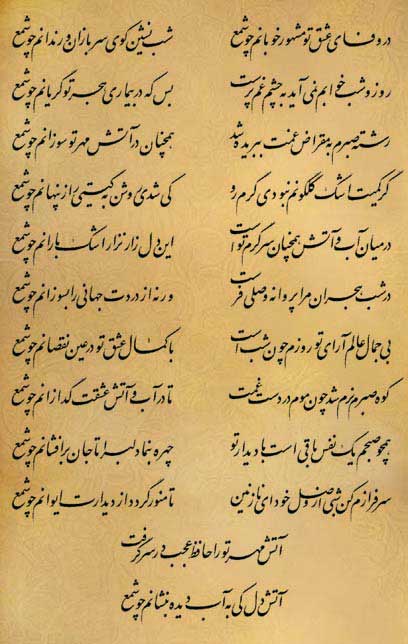 در وفای عشق تو مشهور خوبانم چو شمع شب نشین کوی سربازان و رندانم چو شمع
روز و شب خوابم نمی آید به چشم غم پرست بس که در بیماری هجر تو گریانم چو شمع
رشته صبرم به مقراض غمت ببریده شد همچنان در آتش مهر تو سوزانم چو شمع
گر کمیت اشک گلگونم نبودی گرم رو کی شدی روشن به گیتی راز پنهانم چو شمع
در میان آب و آتش همچنان سرگرم تو است این دل زار نزار اشک بارانم چو شمع
در شب هجران مرا پروانه وصلی فرست ور نه از دردت جهانی را بسوزانم چو شمع
بی جمال عالم آرای تو روزم چون شب است با کمال عشق تو در عین نقصانم چو شمع
کوه صبرم نرم شد چون موم در دست غمت تا در آب و آتش عشقت گدازانم چو شمع
همچو صبحم یک نفس باقی است با دیدار تو چهره بنما دلبرا تا جان برافشانم چو شمع
سرفرازم کن شبی از وصل خود ای نازنین تا منور گردد از دیدارت ایوانم چو شمع
آتش مهر تو را حافظ عجب در سر گرفت
آتش دل کی به آب دیده بنشانم چو شمع